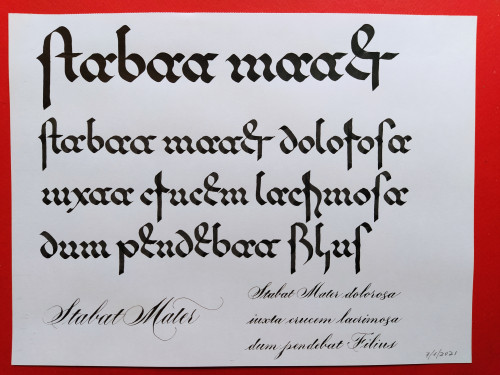 stabat mater
stabat mater dolorosa
iuxta crucem lacrimosa
dum pendebat filius
Stabat Mater
Stabat Mater dolorosa
iuxta crucem lacrimosa
dum pendebat Filius